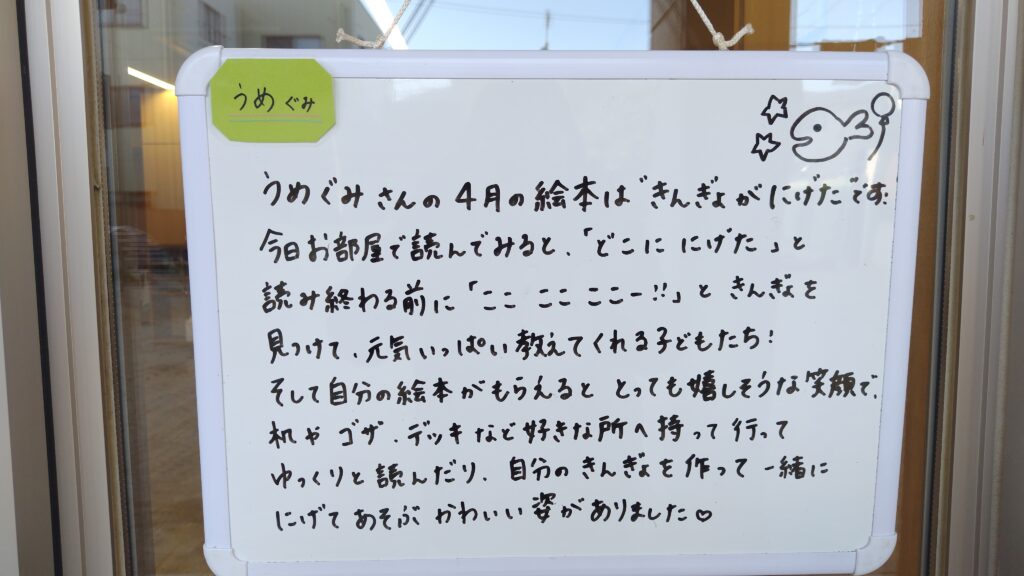 うめぐみ
うめぐみさんの4月の絵本は"きんぎょがにげた"です!
今日お部屋で読んでみると、「どこに にげた」と
読み終わる前に「ここ ここ ここー!!」と きんぎょを
見つけて、元気いっぱい教えてくれる子どもたち!
そして自分の絵本がもらえると とっても嬉しそうな笑顔で、
机や ゴザ、デッキなど好きな所へ持って行って
ゆっくりと読んだり、自分のきんぎょを作って一緒に
にげてあそぶ かわいい姿がありました♡